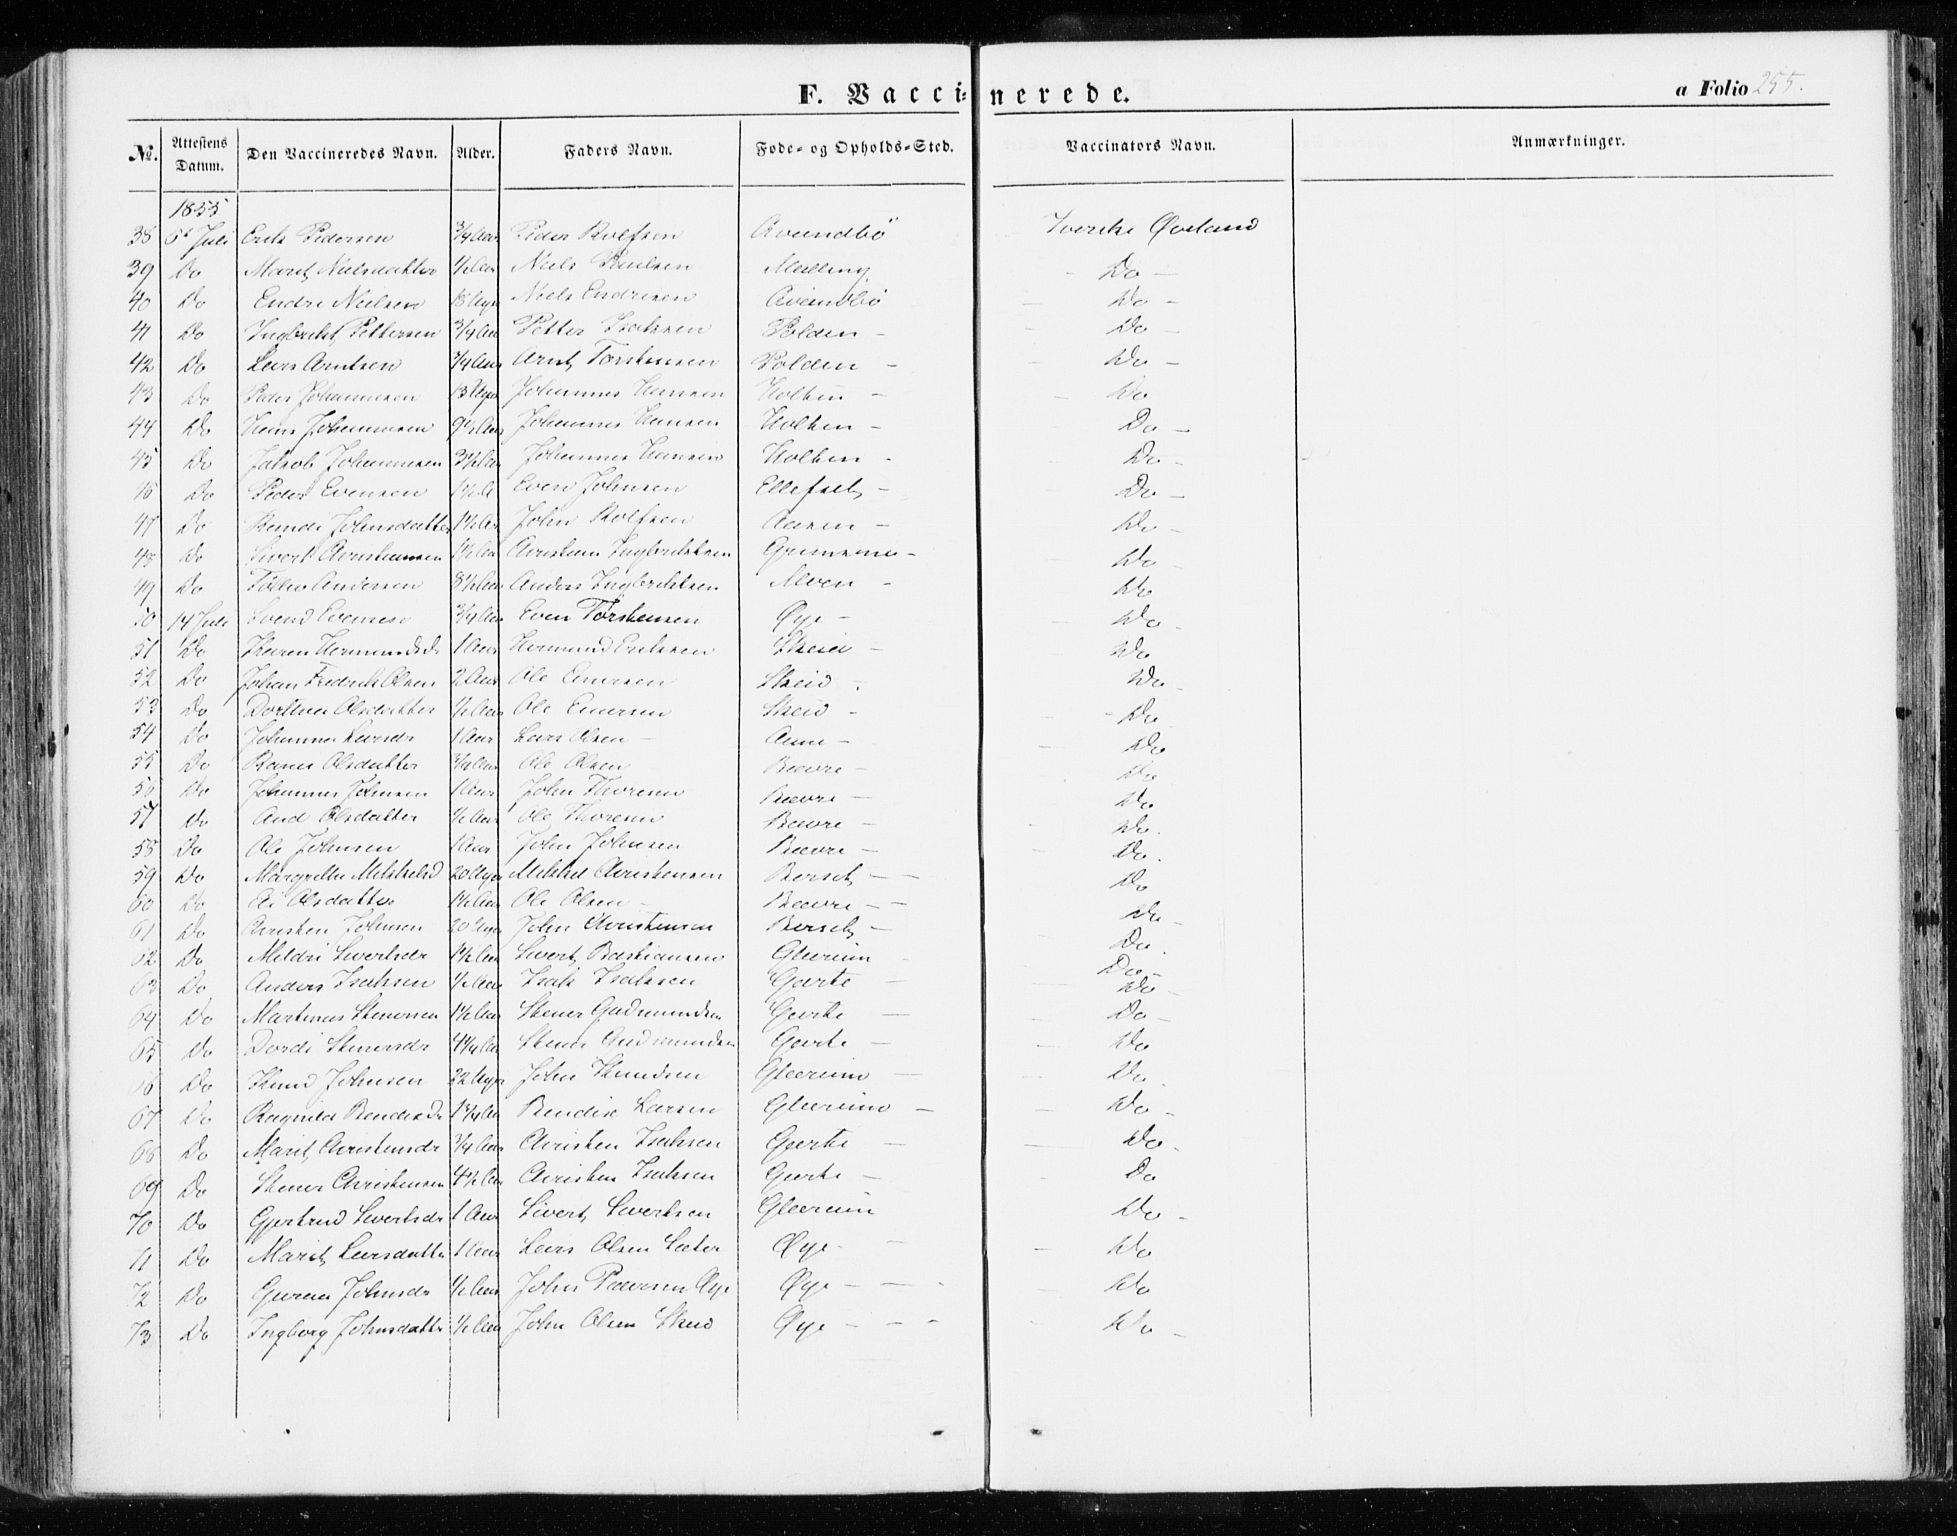 F. Vaccinerede.
a Folio 255.
No. Attestens Datum. Den Vaccineredes Navn. Alder. Faders Navn. Føde- og Opholds-Sted. Vaccinators Navn. Anmærkninger.
1855
38 6te Juli Erik Pedersen 3/4 Aar Peder Rolfsen Qvendbø Sverke Øveland
39 Do Marit Nielsdatter 1/2 Aar Niels Paulsen Melling Do
40 Do Endre Nielsen 18 Uger Niels Endresen Qvendbø Do
41 Do Ingbrikt Pettersen 3/4 Aar Petter Isaksen Polden Do
42 Do Lars Arntsen 3/4 Aar Arnt Torstensen Polden Do
43 Do Peder Johannesen 13 Uger Johannes Hansen Holten Do
44 Do Hans Johannesen 9 1/2 Aar Johannes Hansen Holten Do
45 Do Jakob Johannesen 3 1/2 Aar Johannes Hansen Holten Do
46 Do Peder Evensen 1 1/2 A Even Johnsen Ellefset Do
47 Do Randi Johnsdatter 1 1/2 Aar John Rolfsen Aasen Do
48 Do Sivert Christensen 1 1/2 Aar Christen Ingbriktsen Grimsmo Do
49 Do Andersen 8 1/2 Aar Anders Ingbriktsen Moen Do
50 14 Juli Svend Evensen 3/4 Aar Even Torstensen Øye Do
51 Do Karen Hermundsdr 1 Aar Hermund Eriksen Skeid Do
52 Do Johan Fredrik Olsen 2 Aar Ole Einersen Skeid Do
53 Do Dorthea Olsdatter 1/2 Aar Ole Einersen Skeid Do
54 Do Johanna Larsdr 1 Aar Lars Olsen Do
55 Do Olsdatter 3/4 Aar Ole Olsen Bævre Do
56 Do Johannes Johnsen 1 Aar John Thoresen Bævre Do
57 Do And Olsdatter 1/2 Aar Ole Thoresen Bævre Do
58 Do Ole Johnsen 1 Aar John Johnsen Bævre Do
59 Do Margrethe Mikkelsd 20 Uger Mikkel Christensen Berset Do
60 Do Olsdatter 1 1/2 Aar Ole Olsen Bævre Do
61 Do Christen Johnsen 20 Uger John Christensen Berset Do
62 Do Mildri Sivertsdr 1 1/2 Aar Sivert Bastiansen Glærum Do
63 Do Anders Isaksen 1/2 Aar Isak Isaksen Gjerte Do
Do
64 Do Martinus Stenersen 1 1/2 Aar Stener Gudmundsen Gjerte Do
65 Do Dordi Stenersdr 4 1/4 Aar Stener Gudmundsen Gjerte Do
66 Do Knud Johnsen 22 Uger John Knudsen Glærum Do
67 Do Ragnild Bendixdr 1 3/4 Aar Bendix Larsen Glærum Do
68 Do Marit Christensdr 3/4 Aar Christen Isaksen Gjerte Do
69 Do Stener Christensen 4 1/2 Aar Christen Isaksen Gjerte Do
70 Do Gjertrud Sivertsdr 1 Aar Sivert Sivertsen Glærum Do
71 Do Marit Larsdatter 1 Aar Lars Olsen Sæter Øye Do
72 Do Guren Johnsdr 1/2 Aar John Pedersen Øye Øye Do
73 Do Ingborg Johnsdatter 1/2 Aar John Olsen Skeid Øye Do